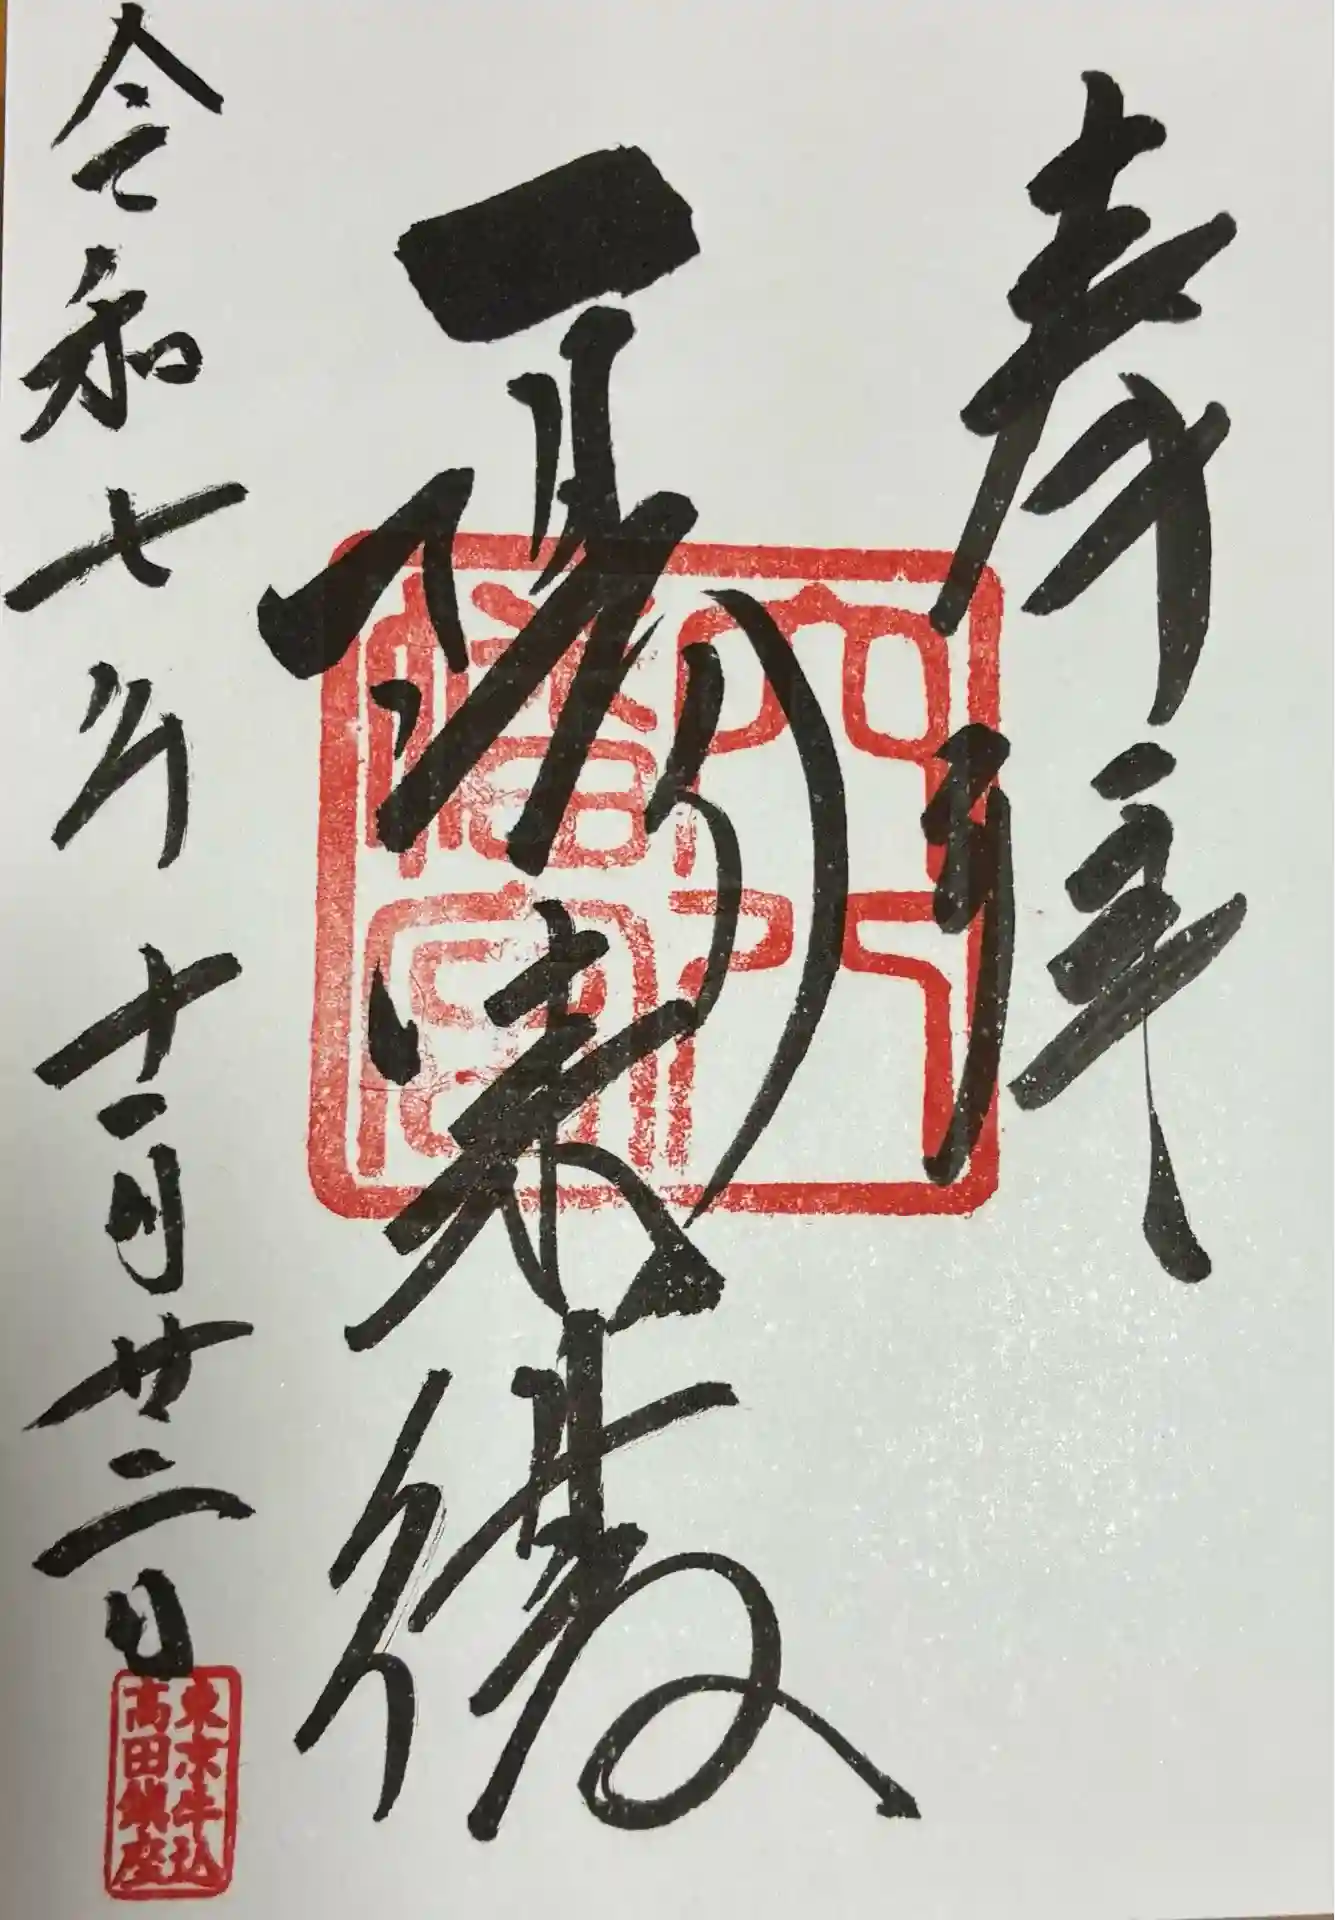 奉拝
一陽来復
令和七年十一月廿二日
穴八幡宮
東京牛込
高田鎮座